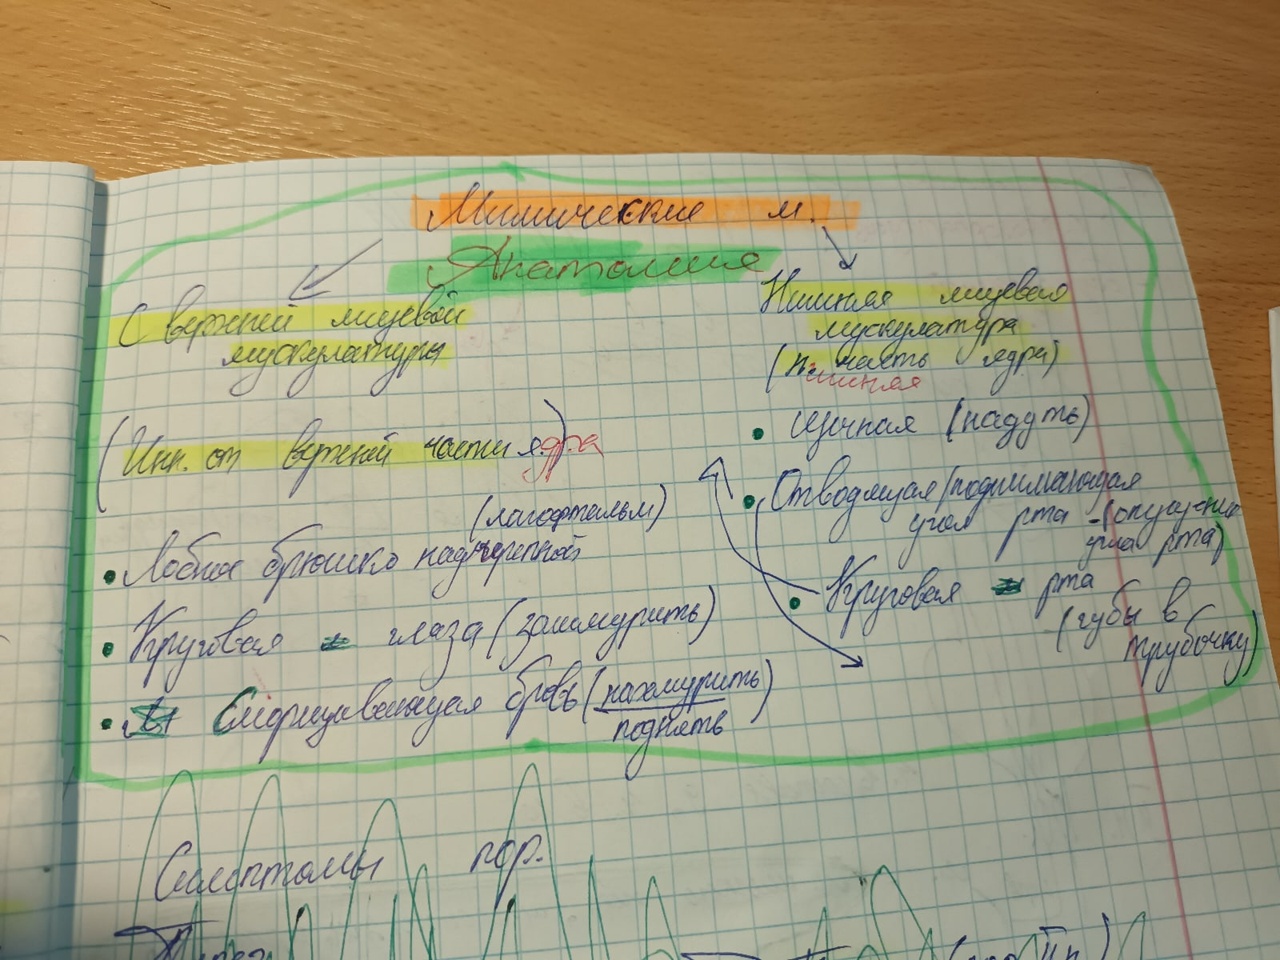 Мимические м.
Анатомия
С верхней лицевой
мускулатуры
(Инн. от верхней части ядра)
(лагофтальм)
• Лобное брюшко надчерепной
• Круговая глаза (зажмурить)
• Сморщивающая бровь (нахмурить
поднять)
Нижняя лицевая
мускулатура
(н. часть ядра)
ижняя
• Щёчная (надуть)
• Отводящая/поднимающая
угол рта - (опущение
угла рта)
• Круговая рта
(губы в
трубочку)
Симптомы пор.